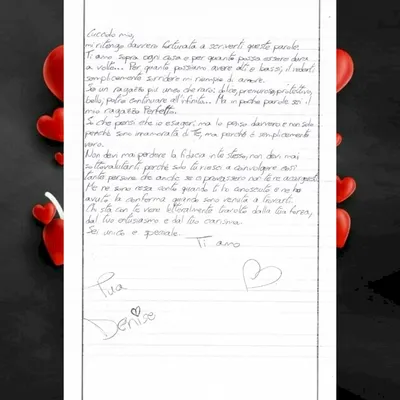 mio,
mi ritengo davvero fortunata a scriverti queste parole.
Ti amo sopra ogni cosa e per quanto possa essere dura
a volte... Per quanto possiamo avere alti e bassi, il vederti
semplicemente sorridere mi riempie di amore.
Sei un ragazzo più unico che raro: dolce, premuroso, protettivo,
bello, potrei continuare all'infinito... Ma in poche parole sei il
mio ragazzo Perfetto.
So che pensi che io esageri, ma lo penso davvero e non solo
perché sono innamorata di Te, ma perché è semplicemente
vero.
Non devi mai perdere la fiducia in te stesso, non devi mai
sottovalutarti perché solo tu riesci a coinvolgere così
tante persone che anche se ci provassero non te ne accorgeresti
Me ne sono resa conto quando ti ho conosciuto e ne ho
avuto la conferma quando sono venuta a trovarti.
Chi sta con te viene letteralmente travolto dalla tua forza,
dal tuo entusiasmo e dal tuo carisma.
Sei unico e speciale.
Ti amo
Tua
Denise